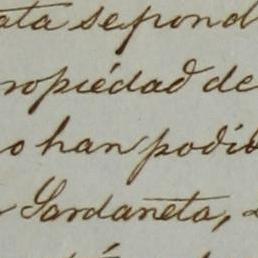 ata se pond
ropiédad de
o han podid
Sardaneta,